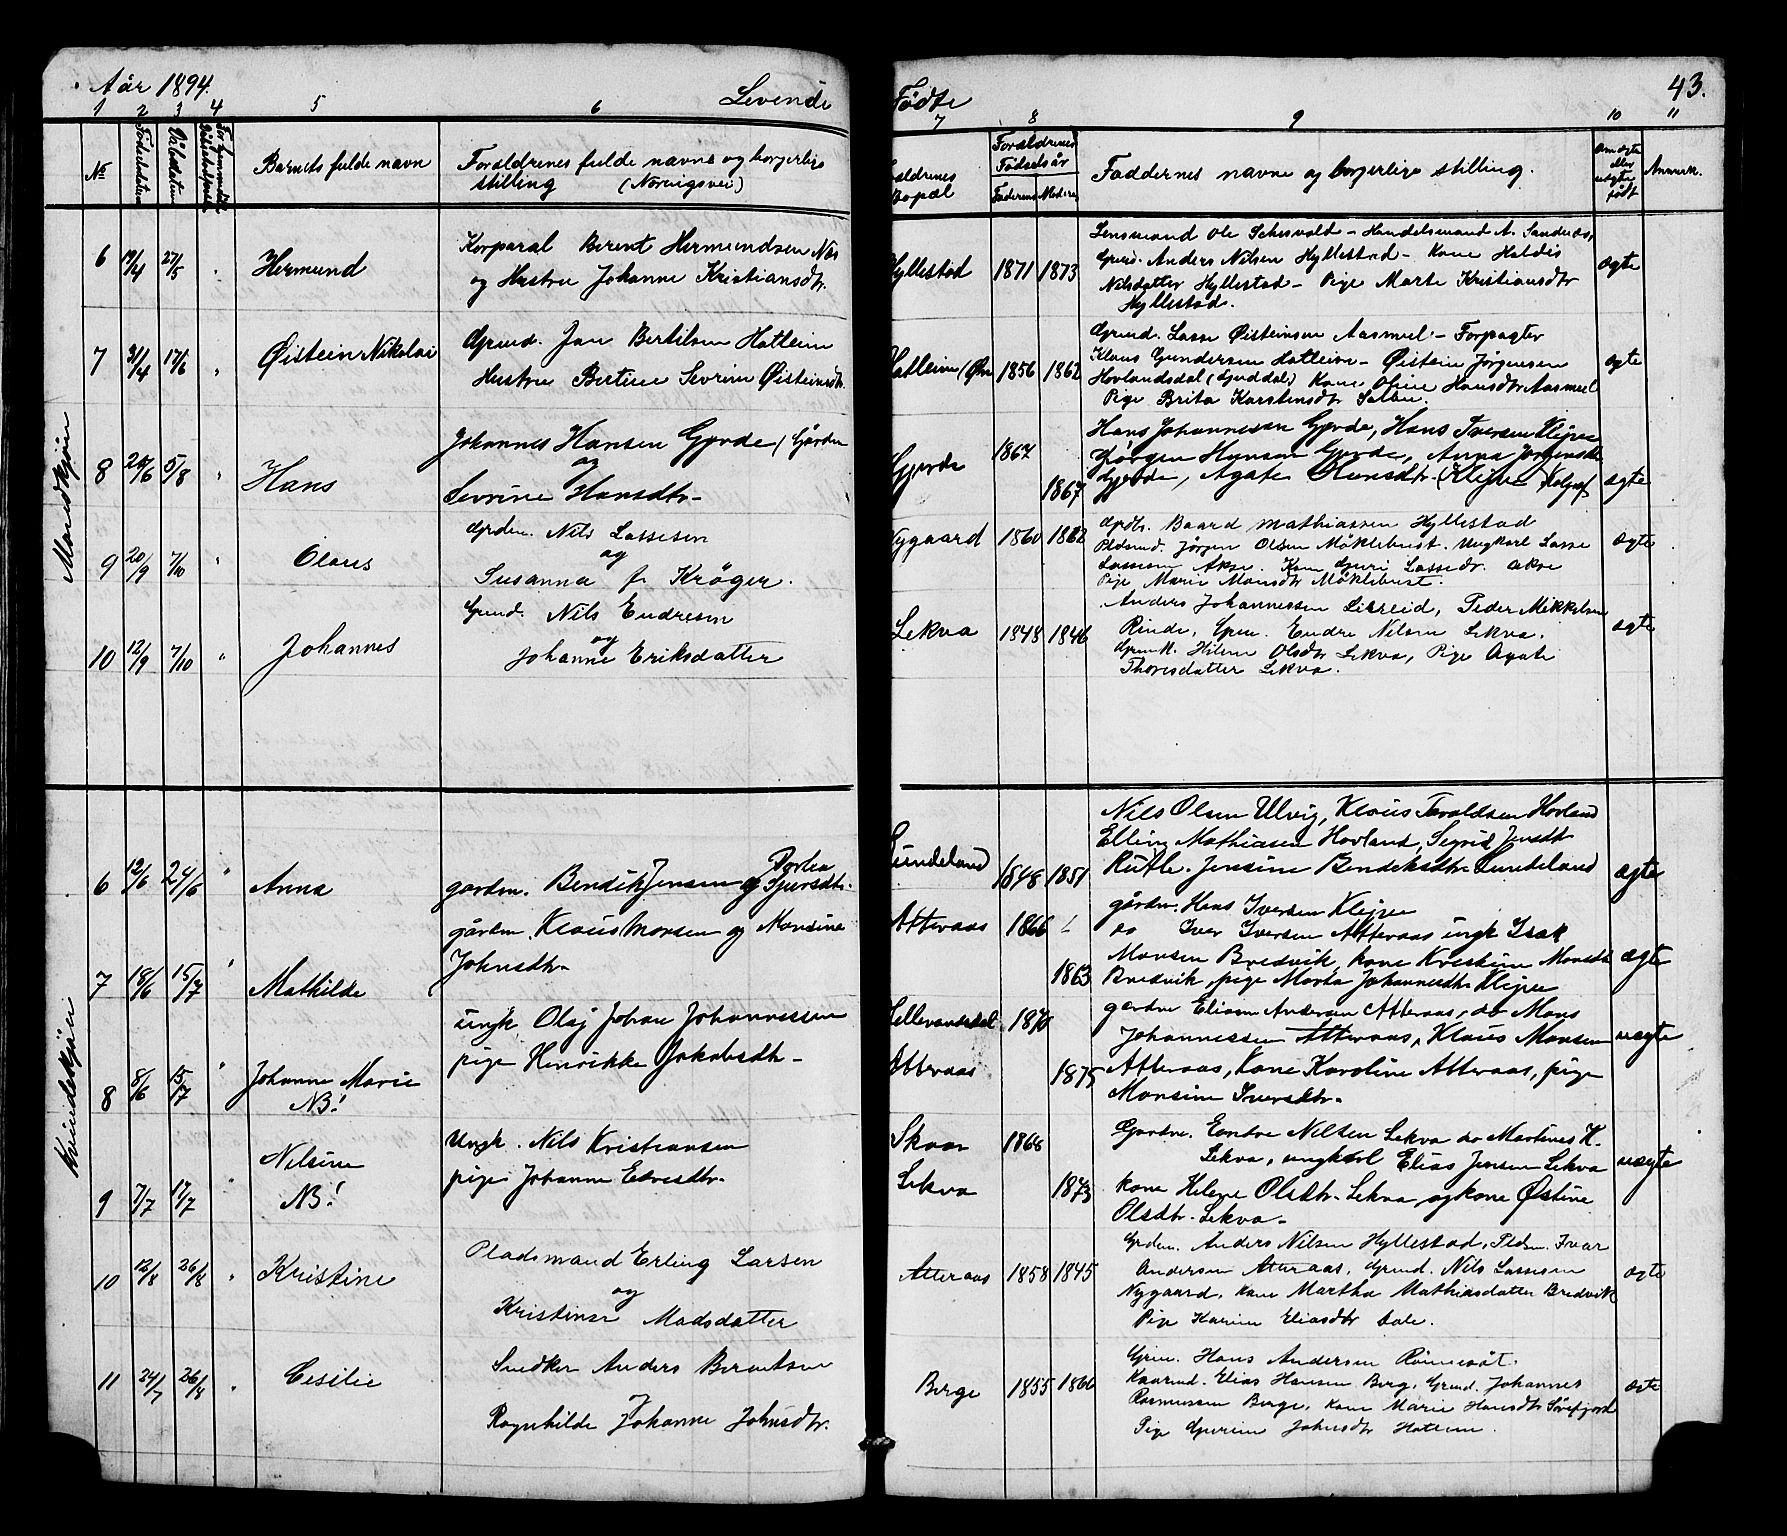 Aar 1894.
Levende
Fødte
43.
1 2 3 4 5 6 7 8 9 10 11
№ Fødselsdatum Daabsdatum Barnets fulde navn
Forældrenes fulde navne og borgerlige stilling (Næringsvei)
Forældrenes Fødselsår
Faderens Moderens
Faddernes navne og borgerlige stilling.
Om ægte eller uægte født
Anmærk.
Mandkjøn
6 19/4 27/5 " Hermund
Korporal Berent Hermundsen Næs
og Hustru Johanne Kristiansdtr.
Hyllestad 1871 1873
Lensmand Ole Schesvold - Handelsmand A. Sandnæs,
Grd. Anders Nilsen Hyllestad - Kone Heldis
Nilsdatter Hyllestad - Pige Marte Kristiansdtr
Hyllestad.
ægte
7 3/4 17/6 " Øistein Nikolai
Grmd. Jan Bertilsen Hatleim
Hustru Bertine Sevrine Øisteinsdtr.
Hatleim 1856 1862
Grmd. Lasse Øisteinsen Aasmul - Forpagter
Klaus Gundersen Hatleim - Øistein Jørgensen
Hovlandsdal Kone Oline Hansdtr Aasmul
Pige Brita Karstensdtr
ægte
8 5/8 " Hans
Johannes Hansen Gjerde
og
Sevrine Hansdtr-
Gjerde 1867
Hans Johannessen Gjerde, Hans Iversen
Jørgen Hansen Gjerde, Anna Jørgensdtr
Gjerde, Agate Hansdtr.
ægte
9 20/9 7/10 " Olaus
Grdm. Nils Lassesen
og
Susanna f. Krøger.
Nygaard 1860 1862
Grdbr. Baard Mathiassen Hyllestad
Pldsmd. Jørgen Olsen Mõklebust. Ungkarl Lasse
Lassesen Akse. Kone Guri Lassedr. Akse
Pige Marie Monsdtr Mõklebust.
ægte
10 12/9 7/10 " Johannes
Grmd. Nils Endresen
og
Johanne Eriksdatter
Lekva 1848 1846
Anders Johannessen Lisreid, Peder Mikkelsen
Rinde, Endre Nilsen Lekva,
Helene Olsdtr Lekva, Pige Agate
Thoresdatter Lekva.
ægte
Kvindekjøn
6 12/6 24/6 " Anna
gårdm. Bendik Jensen og Sjursdtr.
Sundeland 1848 1851
Nils Olsen Ulvig, Klaus Taraldsen Hovland
Elling Mathiasen Hovland, Sigrid Jensdtr
Rutle. Jensine Bendeksdtr Sundeland
ægte
7 18/6 15/7 " Mathilde
gårdm. Klaus Monsen og Monsine
Johnsdtr-
Atteraas 1866
1863
gårdm. Hans Iversen Klejve
do Iver Iversen Atteraas ungk Isak
Monsen Bredvik, kone Kristine Monsdtr
Bredvik, pige Marta Johannesdtr Klejve
ægte
8 8/6 15/7 " Johanne Marie
NB!
ungk. Olaj Johan Johannessen
pige Henrikke Jakobsdtr-
Atteraas 1875
gårdm Elias Andersen Atteraas, do Mons
Johannessen Atteraas, Klaus Monsen
Atteraas, Kone Karoline Atteraas, pige
Monsine Iversdtr-
uægte
9 7/7 17/7 " Nilsine
NB!
Ungk. Nils Kristiansen
pige Johanne Edvesdtr-
Skaar
Lekva 1873
Gårdm. Endre Nilsen Lekva do Martinus K.
Lekva, ungkarl Elias Jensen Lekva
kone Helene Olsdtr- Lekva og kone Østine
Olsdtr- Lekva-
uægte
10 12/8 26/8 " Kristine
Pladsmand Erling Larsen
og
Kristense Madsdatter
Atteraas 1858 1845
Grdm. Anders Nilsen Hyllestad, Pldsm. Ivar
Andersen Atteraas, Grmd. Nils Lassesen
Nygaard, Kone Martha Mathiasdatter Bredvik
Pige Karine Eliasdtr Dale.
ægte
11 24/7 26/8 " Cesilie
Snedker Anders Berentsen
og
Ragnhilde Johanne Johnsdtr.
Berge 1855 1866
Hans Andersen
Elias Hansen Berg, Grmd. Johannes
Rasmussen Berge, Kone Marie Hansdtr Sørefjord
Pige Gurine Johnsdtr Hatlem.
ægte